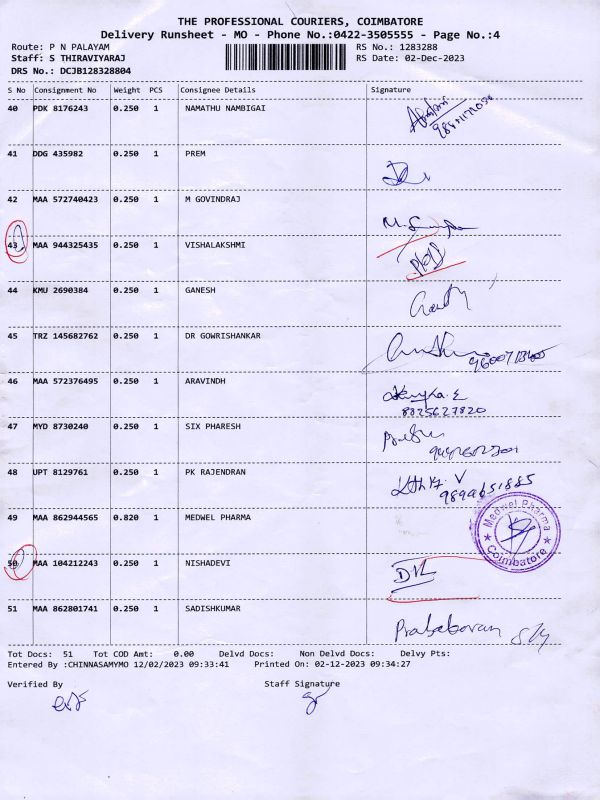 THE PROFESSIONAL COURIERS, COIMBATORE
Delivery Runsheet - MO - Phone No.:0422-3505555 - Page No.:4
Route: P N PALAYAM
RS No.: 1283288
Staff: S THIRAVIYARAJ
RS Date: 02-Dec-2023
DRS No.: DCJB128328804
S No Consignment No Weight PCS Consignee Details Signature
40 PDK 8176243 0.250 1 NAMATHU NAMBIGAI
41 DDG 435982 0.250 1 PREM
42 MAA 572740423 0.250 1 M GOVINDRAJ
43 MAA 944325435 0.250 1 VISHALAKSHMI
44 KMU 2690384 0.250 1 GANESH
45 TRZ 145682762 0.250 1 DR GOWRISHANKAR
46 MAA 572376495 0.250 1 ARAVINDH
8825627820
47 MYD 8730240 0.250 1 SIX PHARESH
48 UPT 8129761 0.250 1 PK RAJENDRAN
49 MAA 862944565 0.820 1 MEDWEL PHARMA
Medwel Pharma
Coimbatore
50 MAA 104212243 0.250 1 NISHADEVI
DVL
51 MAA 862801741 0.250 1 SADISHKUMAR
Prabaharan
Tot Docs: 51 Tot COD Amt: 0.00 Delvd Docs: Non Delvd Docs: Delvy Pts:
Entered By :CHINNASAMYMO 12/02/2023 09:33:41 Printed On: 02-12-2023 09:34:27
Verified By Staff Signature